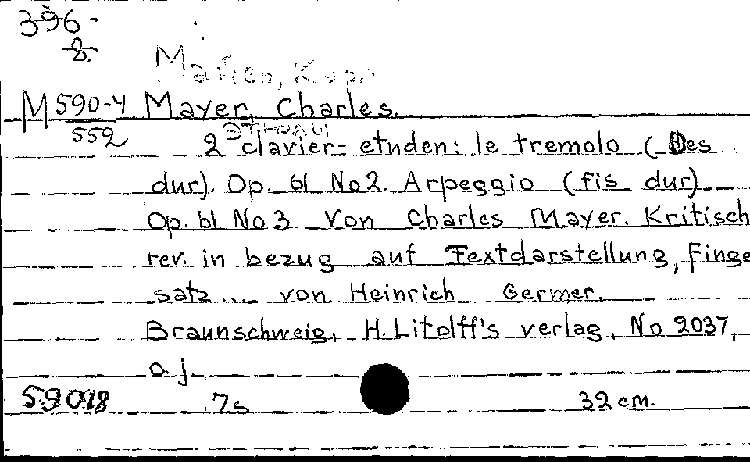 396-
8.
M590-4 Mayer, Charles.
552 2 clavier-etuden: le tremolo (Des
dur). Op. 61 No2. Arpeggio (fis dur)
Op. 61 No 3 von Charles Mayer. Kritisch
rev. in bezug auf Textdarstellung, Finge
satz... von Heinrich Germer.
Braunschweig, H. Litolff's verlag, No 2037,
o j.
59018 7s 32 cm.